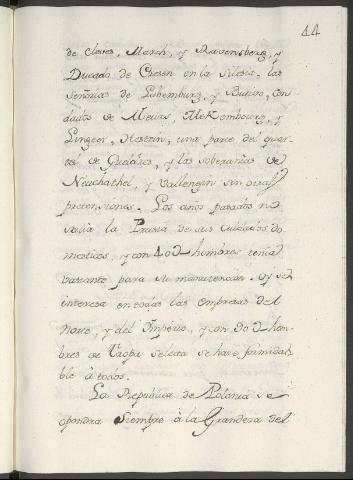 44
de Cleves, March, y Ravensberg, y
Ducado de Crosen en la Silesia, las
Señorias de Lubemburg, y Butiro, Con
dados de Meurs, Meklembourg, y
Lingeor, Hostein, una parte del quar
tel de Gueldres, y las soberanias de
Neuchathel, y Vallengin sin otras
pretensiones. Los años pasados no
salia la Prusia de sus Cuidados do
mesticos, y con 40 D hombres tenia
bastante para su manutencion. Oy se
interesa en todas las empresas del
Norte, y del Imperio, y con 90 D hom
bres de Tropa selecta se hace formida
ble à todos.
La Republica de Polonia se
opondra siempre à la Grandeza del